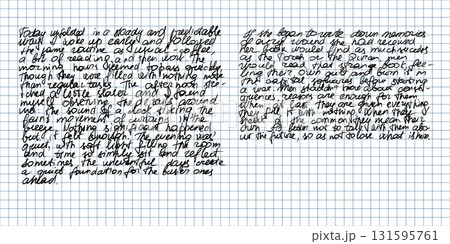 Today unfolded in a steady and predictable
way. I woke up early and followed
the same routine as usual - coffee,
a bit of reading, and then work. The
morning hours seemed to pass quickly,
though they were filled with nothing more
than regular tasks. The afternoon
of little states and I found
myself observing the details around
me: the sound of a clock ticking, the
faint movement of curtains in the
breeze. Nothing significant happened,
but it felt enough. The evening was
quiet, with soft light filling the room
and time to simply sit and reflect.
Sometimes, the uneventful days create
a quiet foundation for the busier ones
ahead.
If she began to write down memories
of every wound she had received,
Her book would find as much success
as the Torah or the Quran. men
would read that strange book, fee-
ling their own guilt and burn it in
the before starting
a war. Men shouldn't know about consti-
quences, reason are enough for them.
When in fact, they are given everything,
they fill it with nothing. When they
speak of the common, they mean their
own. It's better not to talk with them abo-
ut the future, so as not to lose what is here.
131595761